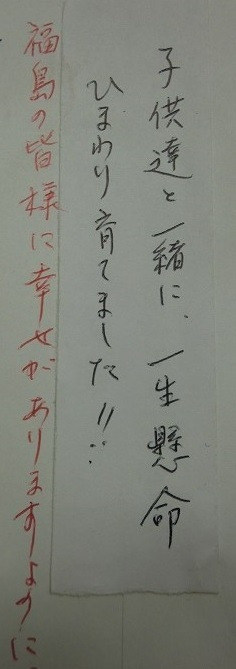 子供達と一緒に、一生懸命
ひまわり育てました!!
福島の皆様に幸せがありますように